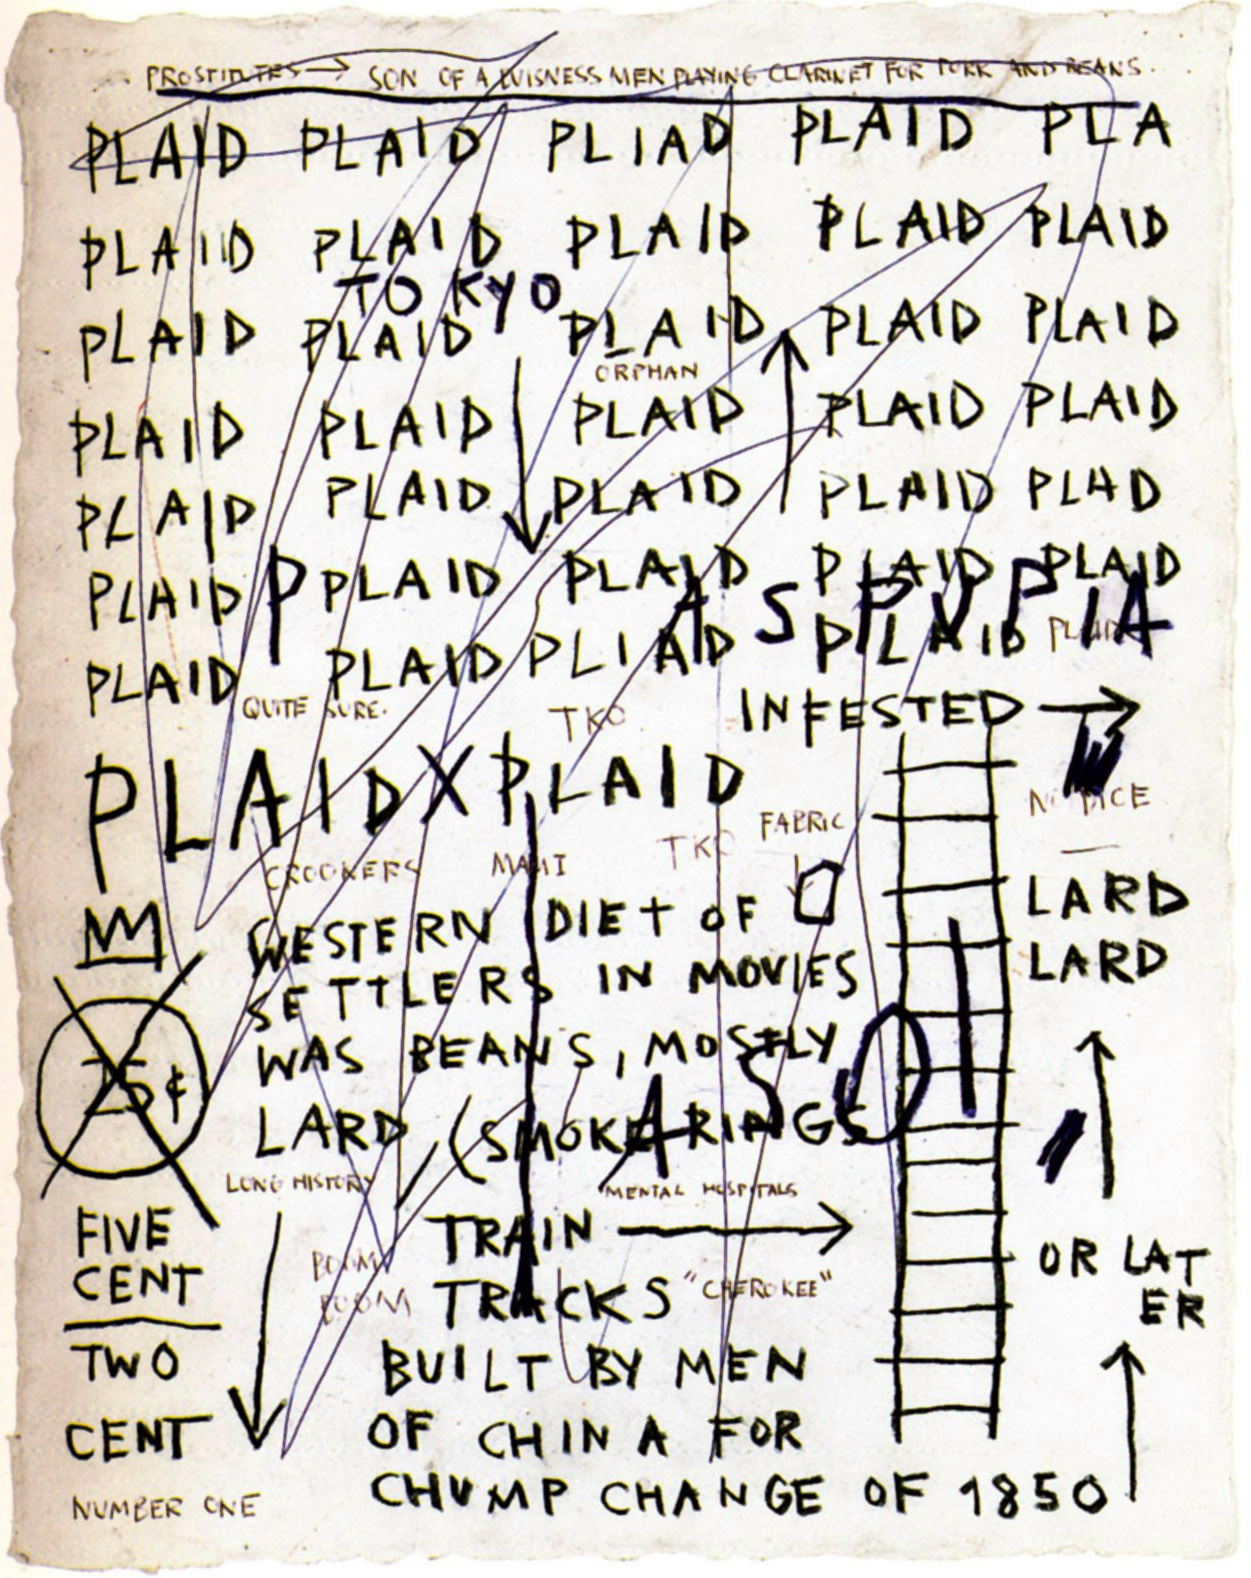 PROSTITUTES → SON OF A BUISNESS MEN PLAYING CLARINET FOR PORK AND BEANS.
PLAID PLAID PLIAD PLAID PLA
PLAID PLAID PLAID PLAID PLAID
TOKYO
PLAID PLAID PLAID PLAID PLAID
ORPHAN
PLAID PLAID PLAID PLAID PLAID
PLAID PLAID PLAID PLAID PLAD
PLAID P PLAID PLAID PLAID PLAID
A S P V P I A
PLAID PLAID PLIAD PLAID PLAID
QUITE SURE. TKO INFESTED →
PLAID X PLAID
NO DICE
CROONERS MAMI TKO FABRIC
WESTERN DIET OF LARD
SETTLERS IN MOVIES LARD
25¢ WAS BEANS, MOSTLY
LARD (SMOKE RINGS
LONG HISTORY MENTAL HOSPITALS
FIVE TRAIN →
CENT BOOM TRACKS "CHEROKEE" OR LAT
BOOM ER
TWO BUILT BY MEN
CENT OF CHINA FOR
NUMBER ONE CHUMP CHANGE OF 1850